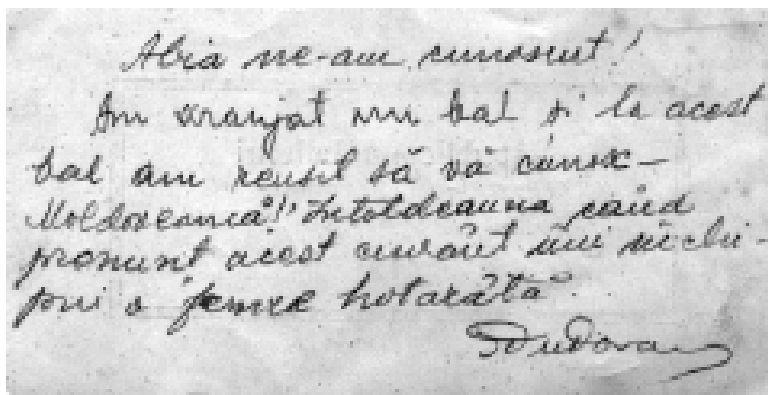 Abia ne-am cunoscut!
Am aranjat un bal și la acest
bal am reusit să vă cunosc –
Moldoveanca!" Intotdeauna când
pronunt acest cuvânt îmi închi-
pui o femee hotarâtă.